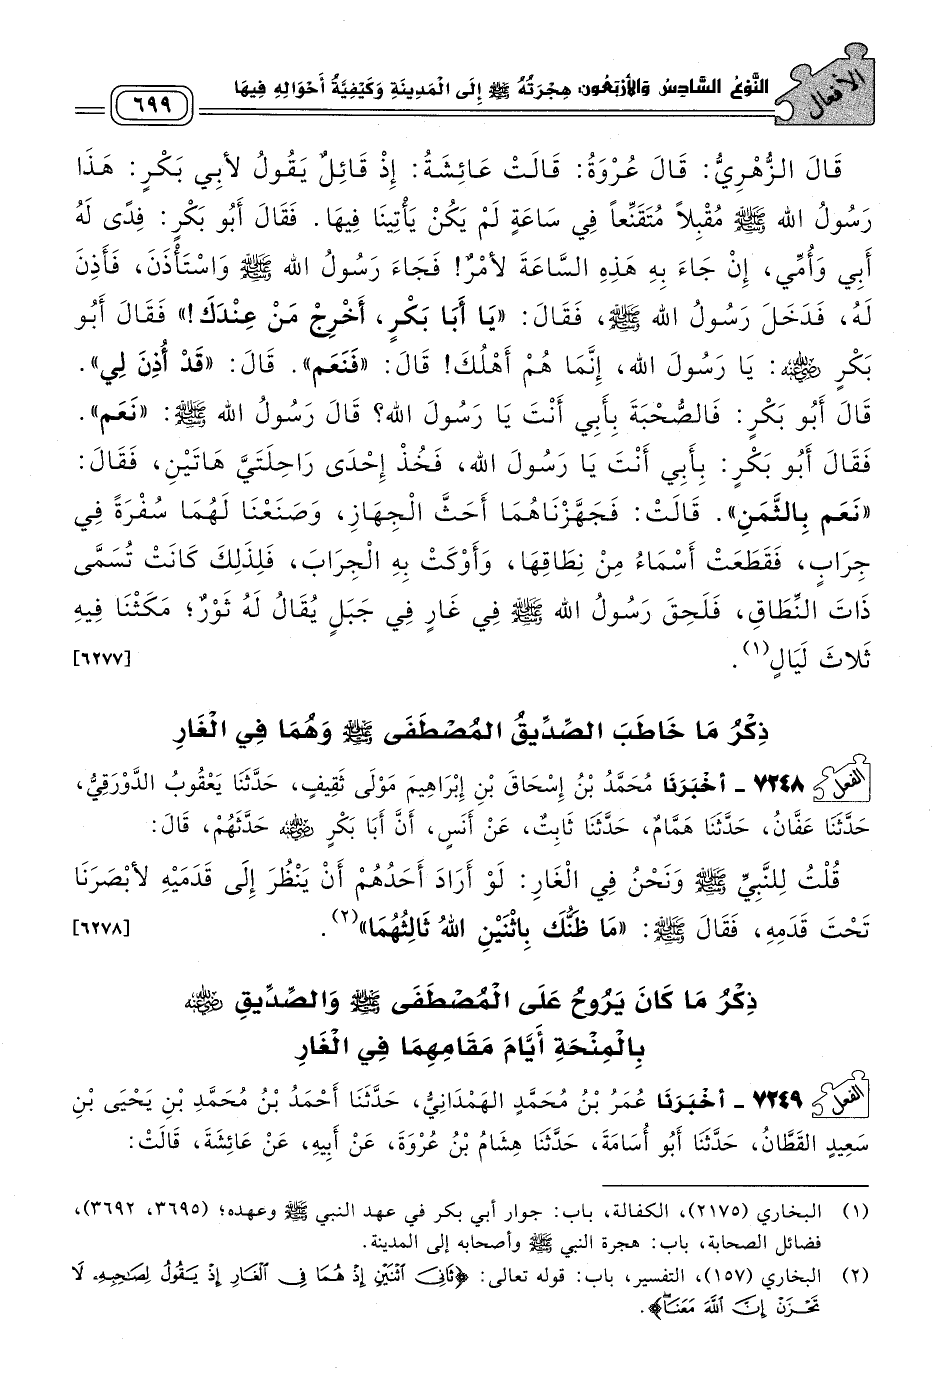 الأفعال
النَّوْعُ السَّادِسُ وَالأَرْبَعُون هِجْرَتُهُ ﷺ إِلَى الْمَدِينَةِ وَكَيْفِيَّةُ أَحْوَالِهِ فِيهَا
٦٩٩
قَالَ الزُّهْرِيُّ: قَالَ عُرْوَةُ: قَالَتْ عَائِشَةُ: إِذْ قَائِلٌ يَقُولُ لأَبِي بَكْرٍ: هَذَا
رَسُولُ الله ﷺ مُقْبِلاً مُتَقَنِّعاً فِي سَاعَةٍ لَمْ يَكُنْ يَأْتِينَا فِيهَا. فَقَالَ أَبُو بَكْرٍ: فِدًى لَهُ
أَبِي وَأُمِّي، إِنْ جَاءَ بِهِ هَذِهِ السَّاعَةَ لأَمْرٌ! فَجَاءَ رَسُولُ الله ﷺ وَاسْتَأْذَنَ، فَأَذِنَ
لَهُ، فَدَخَلَ رَسُولُ الله ﷺ، فَقَالَ: «يَا أَبَا بَكْرٍ، أَخْرِجْ مَنْ عِنْدَكَ!» فَقَالَ أَبُو
بَكْرٍ رضي الله عنه: يَا رَسُولَ الله، إِنَّمَا هُمْ أَهْلُكَ! قَالَ: «فَنَعَم». قَالَ: «قَدْ أُذِنَ لِي».
قَالَ أَبُو بَكْرٍ: فَالصُّحْبَةَ بِأَبِي أَنْتَ يَا رَسُولَ الله؟ قَالَ رَسُولُ الله ﷺ: «نَعَم».
فَقَالَ أَبُو بَكْرٍ: بِأَبِي أَنْتَ يَا رَسُولَ الله، فَخُذْ إِحْدَى رَاحِلَتَيَّ هَاتَيْنِ، فَقَالَ:
«نَعَم بِالثَّمَنِ». قَالَتْ: فَجَهَّزْنَاهُمَا أَحَثَّ الْجِهَازِ، وَصَنَعْنَا لَهُمَا سُفْرَةً فِي
جِرَابٍ، فَقَطَعَتْ أَسْمَاءُ مِنْ نِطَاقِهَا، وَأَوْكَتْ بِهِ الْجِرَابَ، فَلِذَلِكَ كَانَتْ تُسَمَّى
ذَاتَ النِّطَاقِ، فَلَحِقَ رَسُولُ الله ﷺ فِي غَارٍ فِي جَبَلٍ يُقَالُ لَهُ ثَوْرٌ؛ مَكَثْنَا فِيهِ
ثَلاثَ لَيَالٍ(١). [٦٢٧٧]
ذِكْرُ مَا خَاطَبَ الصِّدِّيقُ الْمُصْطَفَى ﷺ وَهُمَا فِي الْغَارِ
الفعل ٧٢٤٨ - أَخْبَرَنَا مُحَمَّدُ بْنُ إِسْحَاقَ بْنِ إِبْرَاهِيمَ مَوْلَى ثَقِيفٍ، حَدَّثَنَا يَعْقُوبُ الدَّوْرَقِيُّ،
حَدَّثَنَا عَفَّانُ، حَدَّثَنَا هَمَّامٌ، حَدَّثَنَا ثَابِتٌ، عَنْ أَنَسٍ، أَنَّ أَبَا بَكْرٍ رضي الله عنه حَدَّثَهُمْ، قَالَ:
قُلْتُ لِلنَّبِيِّ ﷺ وَنَحْنُ فِي الْغَارِ: لَوْ أَرَادَ أَحَدُهُمْ أَنْ يَنْظُرَ إِلَى قَدَمَيْهِ لأَبْصَرَنَا
تَحْتَ قَدَمِهِ، فَقَالَ ﷺ: «مَا ظَنُّكَ بِاثْنَيْنِ اللهُ ثَالِثُهُمَا»(٢). [٦٢٧٨]
ذِكْرُ مَا كَانَ يَرُوحُ عَلَى الْمُصْطَفَى ﷺ وَالصِّدِّيقِ رضي الله عنه
بِالْمِنْحَةِ أَيَّامَ مَقَامِهِمَا فِي الْغَارِ
الفعل ٧٢٤٩ - أَخْبَرَنَا عُمَرُ بْنُ مُحَمَّدٍ الهَمْدَانِيُّ، حَدَّثَنَا أَحْمَدُ بْنُ مُحَمَّدِ بْنِ يَحْيَى بْنِ
سَعِيدٍ القَطَّانُ، حَدَّثَنَا أَبُو أُسَامَةَ، حَدَّثَنَا هِشَامُ بْنُ عُرْوَةَ، عَنْ أَبِيهِ، عَنْ عَائِشَةَ، قَالَتْ:
(١) البخاري (٢١٧٥)، الكفالة، باب: جوار أبي بكر في عهد النبي ﷺ وعهده؛ (٣٦٩٥، ٣٦٩٢)،
فضائل الصحابة، باب: هجرة النبي ﷺ وأصحابه إلى المدينة.
(٢) البخاري (١٥٧)، التفسير، باب: قوله تعالى: ﴿ثَانِيَ اثْنَيْنِ إِذْ هُمَا فِي الْغَارِ إِذْ يَقُولُ لِصَاحِبِهِ لَا
تَحْزَنْ إِنَّ اللَّهَ مَعَنَا﴾.